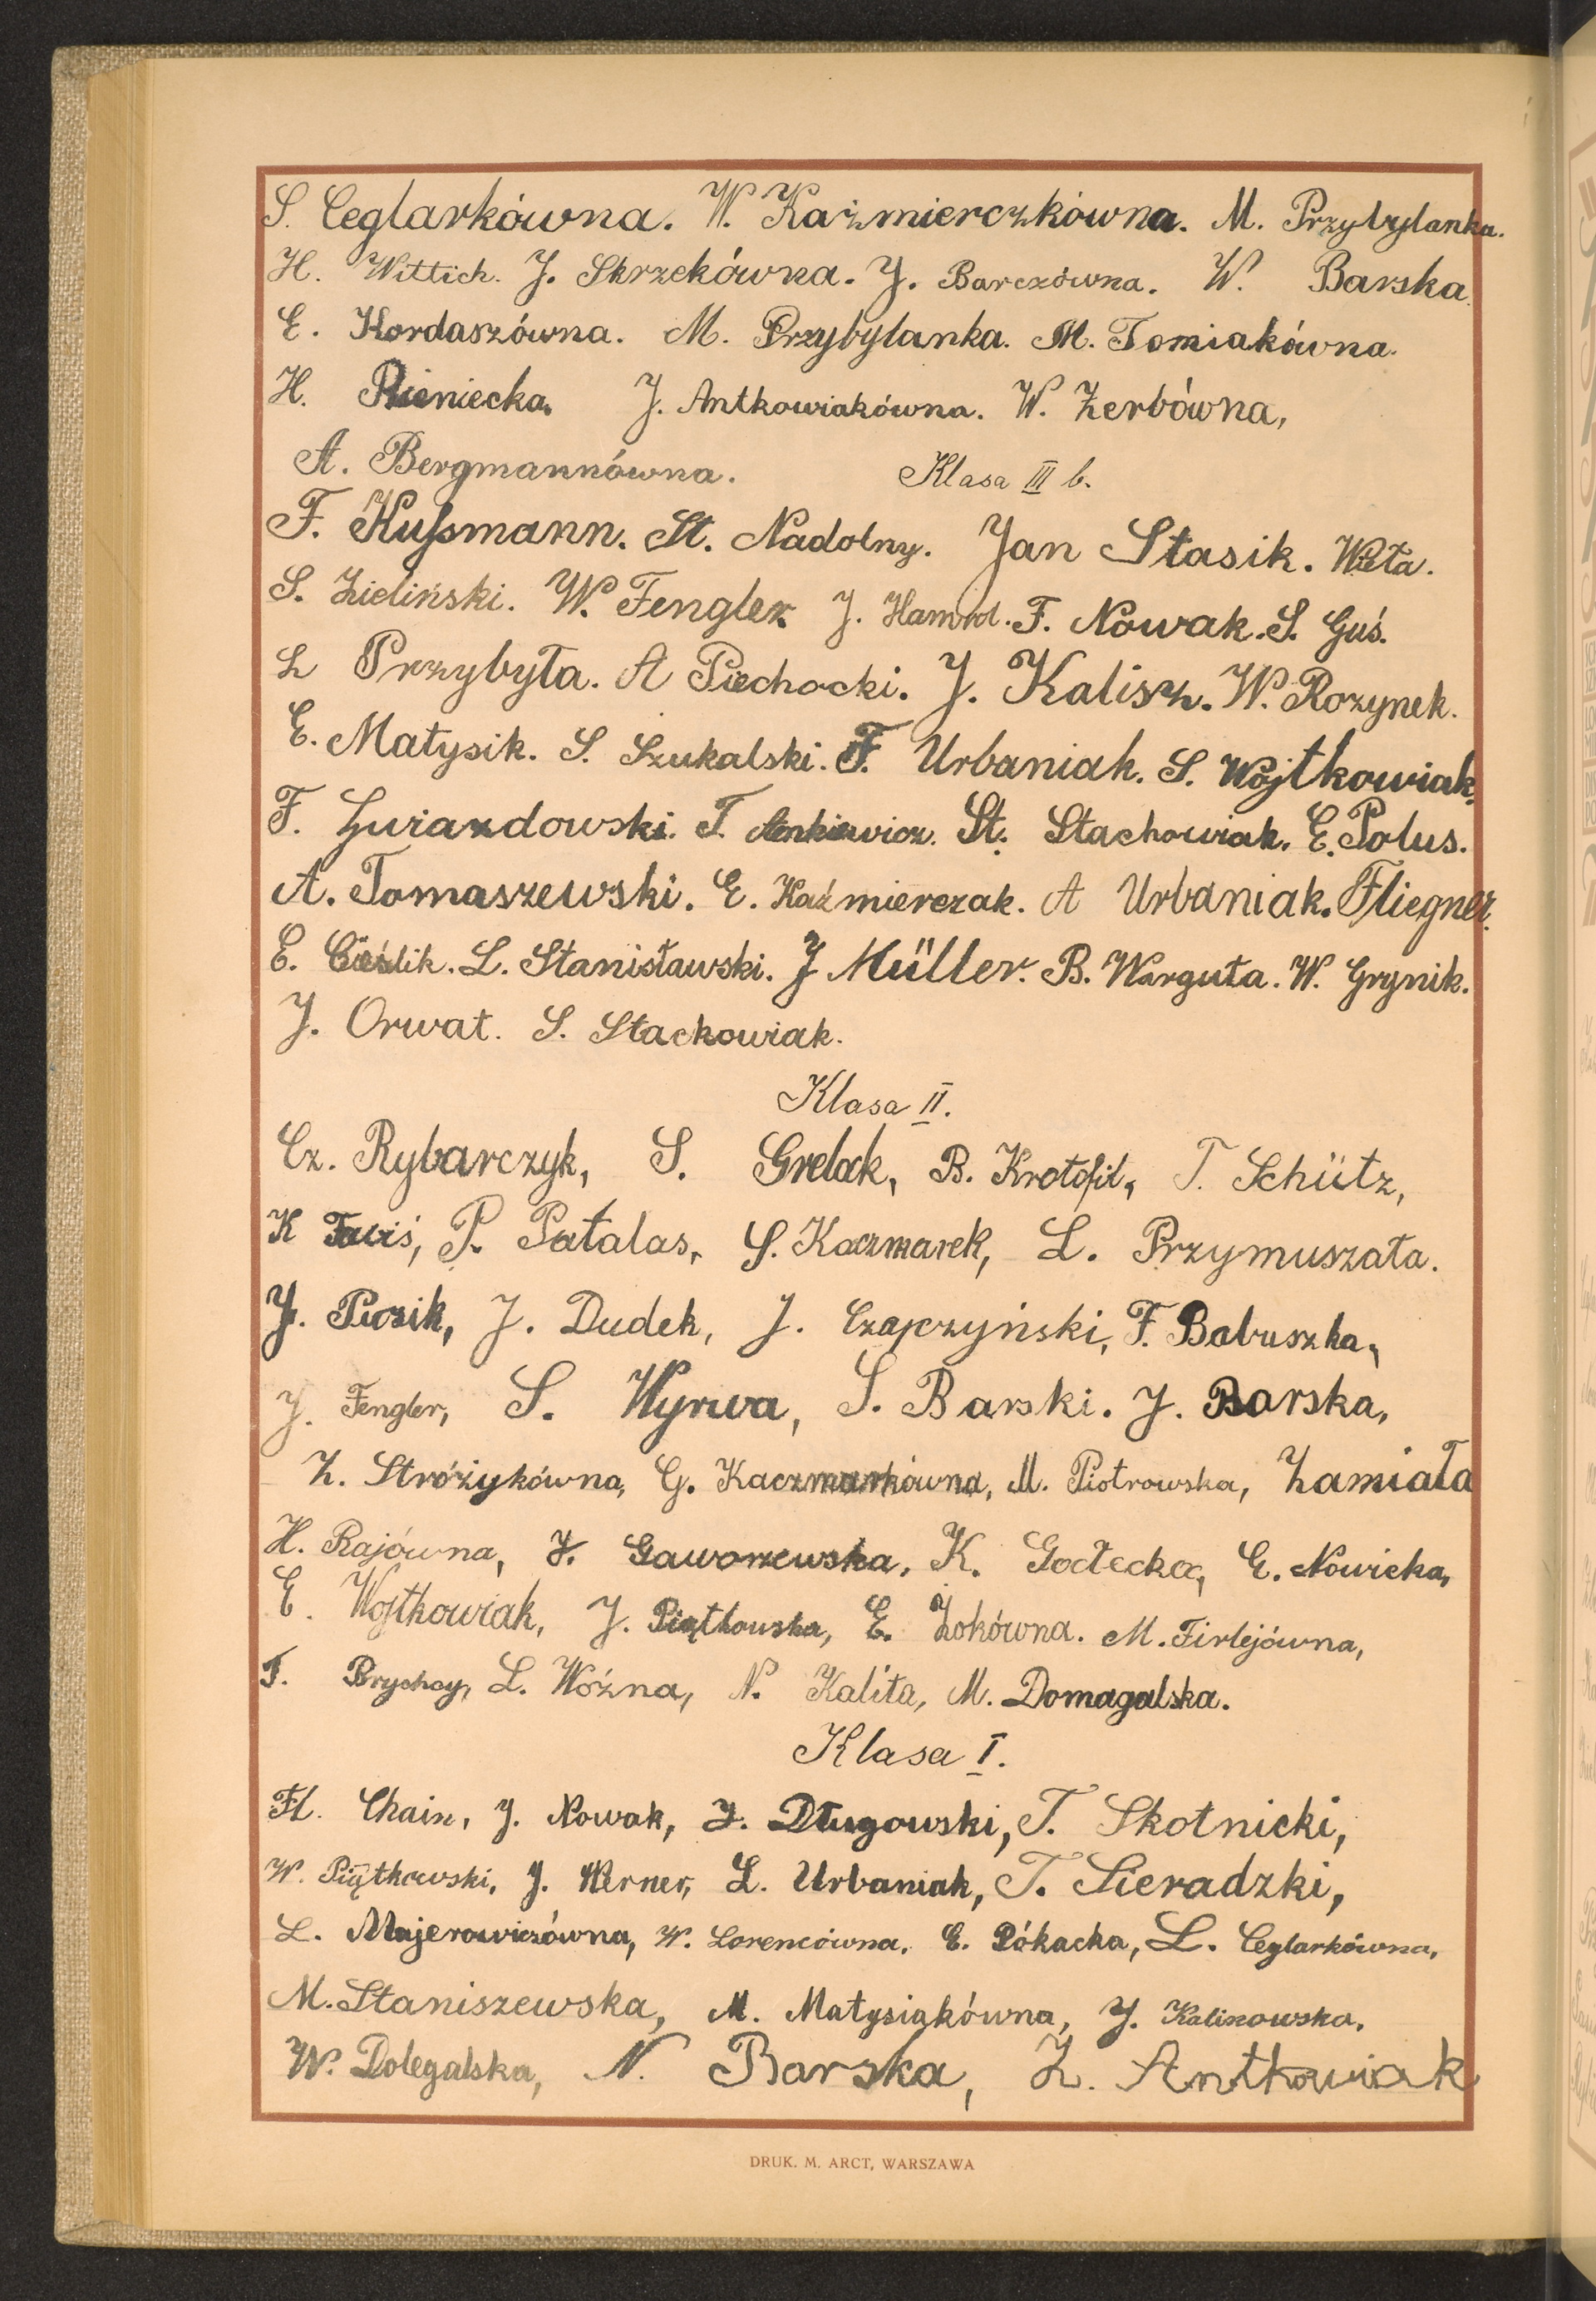 S. Ceglarkówna. W. Kaźmierczkówna. M. Przybylanka.
H. Wittich. J. Skrzekówna. J. Barczówna. W. Barska.
E. Kordaszówna. M. Przybylanka. M. Tomiakówna.
H. Rieniecka. J. Antkowiakówna. W. Zerbówna,
A. Bergmannówna. Klasa III b.
F. Kußmann. St. Nadolny. Jan Stasik. Wita.
S. Zieliński. W. Fengler. J. F. Nowak. S. Guś.
L Przybyła. A Piechocki. J. Kalisz. W. Rozynek.
E. Matysik. S. Szukalski. F. Urbaniak. S. Wojtkowiak.
F. Gwiazdowski. T. St. Stachowiak. E. Polus.
A. Tomaszewski. E. Kaźmierczak. A Urbaniak. Fliegner.
E. Cieślik. L. Stanisławski. J Müller. B. Warguła. W. Grynik.
J. Orwat. S. Stachowiak.
Klasa II.
Cz. Rybarczyk, S. Grelak, B. Krotofil, T. Schütz,
K P. Patalas, S. Kaczmarek, L. Przymuszała.
J. Puzik, J. Dudek, J. Czajczyński, F. Babuszka,
J. Fengler, S. Wyrwa, S. Barski. J. Barska,
Z. Stróżykówna, G. Kaczmarkówna, M. Piotrowska, Zamiała
H. Rajówna, J. Gaworzewska, K. Gołecka, E. Nowicka,
E. Wojtkowiak, J. Piątkowska, E. Żokówna. M. Firlejówna,
F. Brychcy, L. Woźna, N. Kalita, M. Domagalska.
Klasa I.
Fl. Chain, J. Nowak, J. Długowski, T. Skotnicki,
W. Piątkowski, J. Werner, L. Urbaniak, T. Sieradzki,
L. Majerowiczówna, W. Lorencówna. E. Pókacka, L. Ceglarkówna,
M. Staniszewska, M. Matysiakówna, J. Kalinowska,
W. Dolegalska, N. Barska, Z. Antkowiak
DRUK. M. ARCT, WARSZAWA